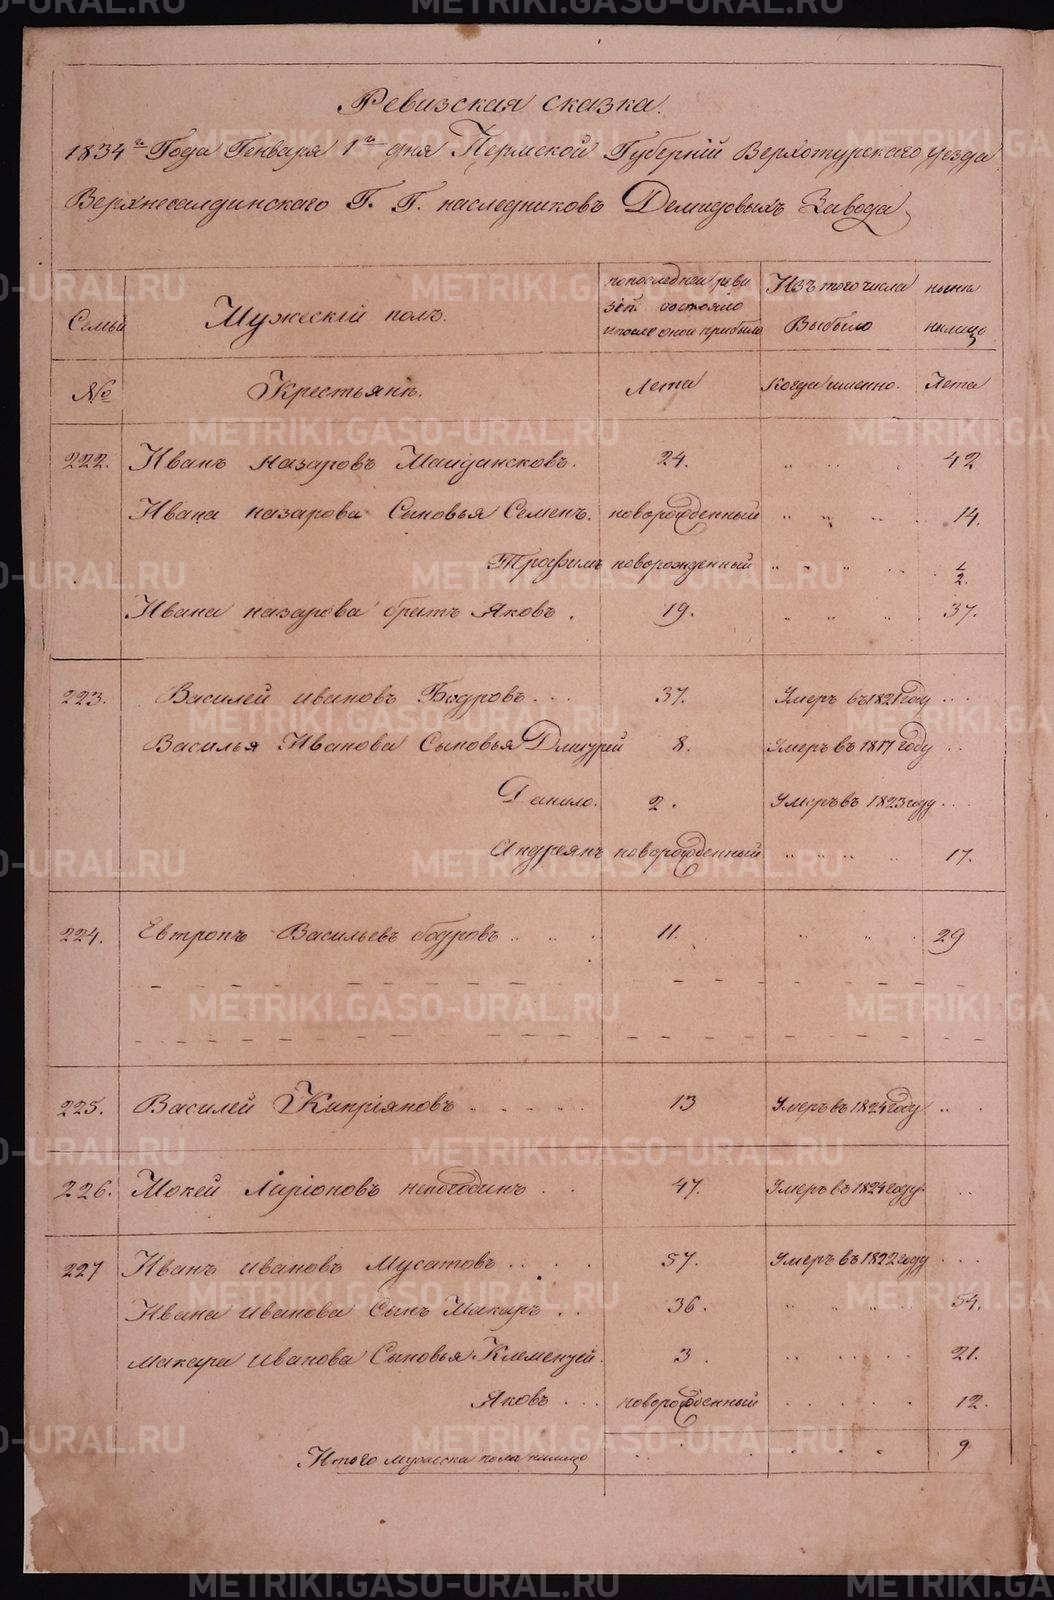 Ревизская сказка.
1834го Года Генваря 1го дня Пермской Губернiй Верхотурскаго уезда
Верхнесалдинскаго Г. Г. наследниковъ Демидовыхъ Завода
Семьи
Мужескiй полъ.
попоследней реви
зiй состояло
ипосле оной прибыло
Изъ того числа
Выбыло
ныне
налицо
№
Крестьяне.
Лета
Когда именно.
Лета
222. Иванъ Назаровъ Майдансковъ. 24. 42
Ивана назарова Сыновья Семенъ. новорожденный 14.
Трофимъ новорожденный ½.
Ивана назарова братъ Яковъ. 19. 37.
223. Василей ивановъ Бодровъ 37. Умеръ въ 1821 году
Василья Иванова Сыновья Дмитрей 8. Умеръ въ 1817 году
Данило. 2. Умеръ въ 1823 году
Андреянъ новорожденный 17.
224. Евтропъ Васильевъ бодровъ 11. 29
225. Василей Киприяновъ 13 Умеръ въ 1824 году
226. Мокей Ларiоновъ непогодинъ 47. Умеръ въ 1824 году
227 Иванъ ивановъ Мусатовъ 57. Умеръ въ 1822 году
Ивана иванова Сынъ Макаръ 36. 54.
Макара иванова Сыновья Клементей. 3. 21.
Яковъ новорожденный 12.
Итого мужеска пола налицо 9
METRIKI.GASO-URAL.RU